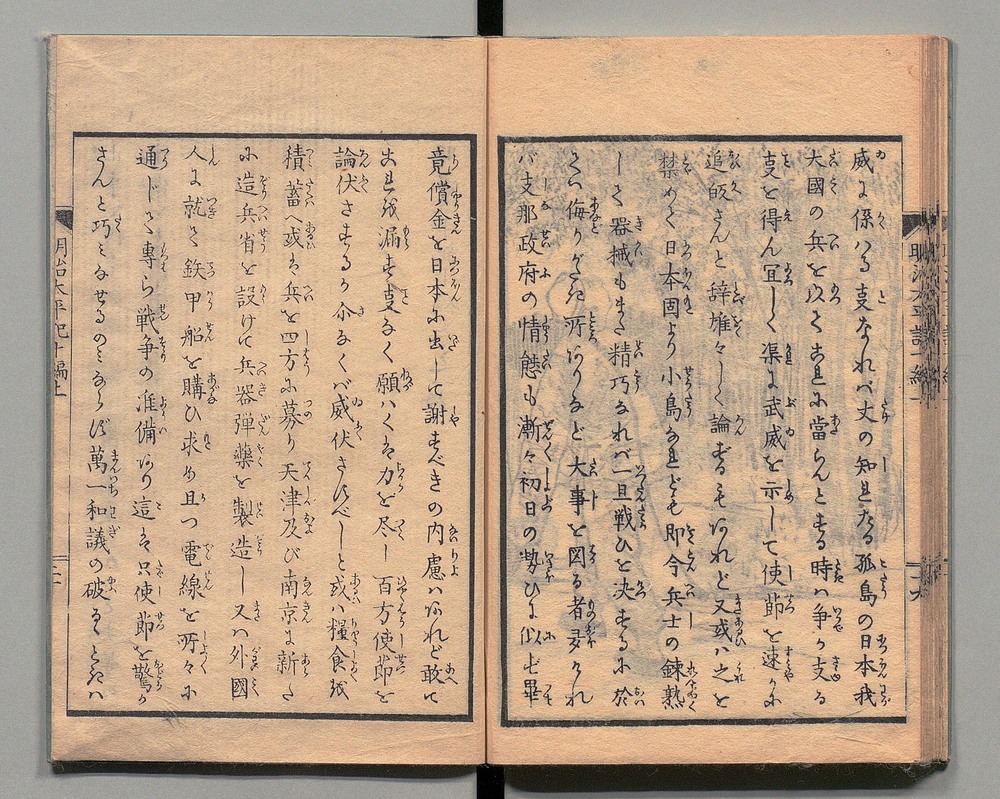 威に係はる叓なれバ丈の知れたる孤島の日本我
大國の兵を以て之れに當らんとする時ハ争か支る
叓を得ん宜しく渠に武威を示して使節を速かに
追皈さんと辞雄々しく論ずるもありれど又或ハ之を
禁めて日本固より小島なれども即今兵士の錬熟
して器械もまた精巧なれバ一旦戦ひを決するに於
てハ侮りがたき所ありなど大事を図る者多けれ
バ支那政府の情態も漸々初日の勢ひに似ず畢
竟償金を日本に出して謝すべきの内慮ハあれど敢て
之れを漏す叓なく願ハくハ力を尽し百方使節を
論伏さするか令なくバ威伏さすべしと或ハ糧食を
積蓄へ或は兵を四方に募り天津及び南京に新た
に造兵省を設けて兵器弾藥を製造し又ハ外國
人に就て鉄甲船を購ひ求め且つ電線を所々に
通じて專ら戦争の准備あり這は只使節を驚か
さんと巧みなせるのみならず萬一和議の破るゝときハ
明治太平記十編上